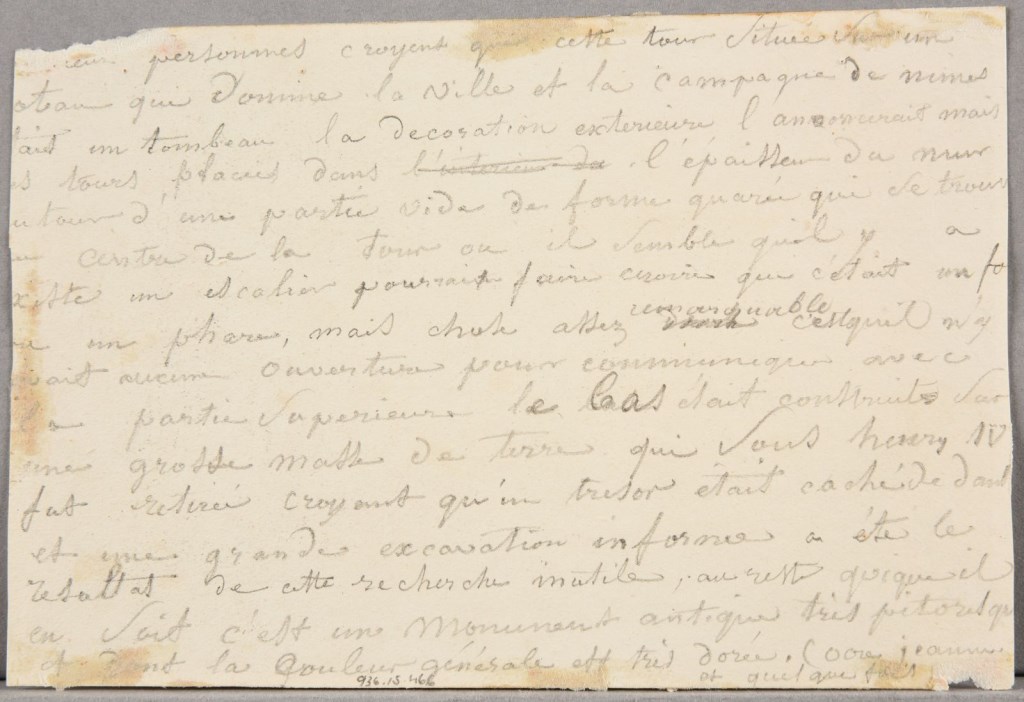 personnes croyent que cette tour située sur un
oteau qui Domine la ville et la campagne de nimes
tait un tombeau la decoration exterieure l'annoncerait mais
s tours placées dans l'interieur du l'épaisseur du mur
utour d'une partie vide de forme quarée qui se trouv
centre de la tour ou il semble qu'il y a
xisté un escalier pourrait faire croire que c'était un fa
un phare, mais chose assez remarquable c'est qu'il n'y
vait aucune ouverture pour communiquer avec
la partie superieure le bas était construit sur
une grosse masse de terre qui sous henry IV
fut retirée croyant qu'un tresor était caché de dans
et une grande excavation informe a été le
resultat de cette recherche inutile, au reste quoique il
en soit c'est un monument antique très pitoresqu
et dont la couleur générale est très dorée. (ocre jaune
et quelque fois
936.15.466